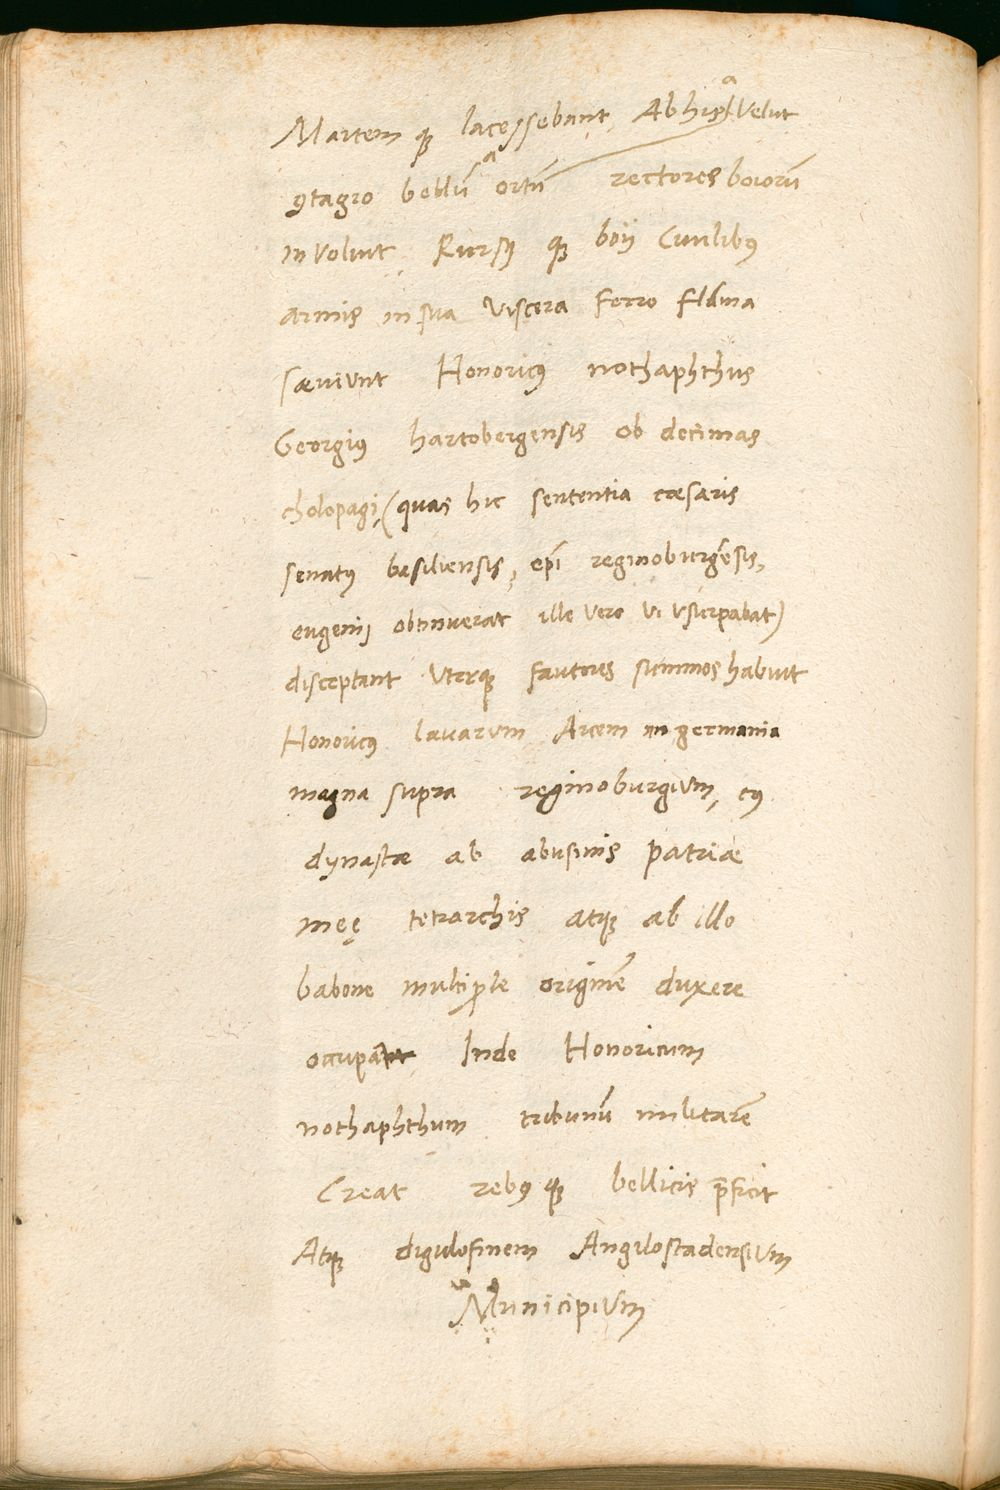 Martem qꝫ lacessebant Ab his a Velut
ꝯtagio bellū a ortū rectores boiorū
involuit Rursꝰ qꝫ boij Civilibꝰ
armis in sua viscera ferro flāma
sæviunt Honoricꝰ nothaphthus
Georgiꝰ hartobergensis ob decimas
cholopagi, (quas hic sententia cæsaris
senatꝰ basiliensis, ep̄i reginoburgēsis,
eugenij obtinuerat ille vero vi usurpabat)
disceptant uterqꝫ fautores summos habuit
Honoricꝰ lavarum Arcem in germania
magna supra reginoburgium, cꝰ
dynastæ ab abusinis patriæ
meę tetrarchis atqꝫ ab illo
babone multiꝓle originē duxere
occupat Inde Honoricum
nothaphthum tribunū militarē
Creat rebꝰ qꝫ bellicis p̄ficit
Atqꝫ Angilostadensium
Municipium